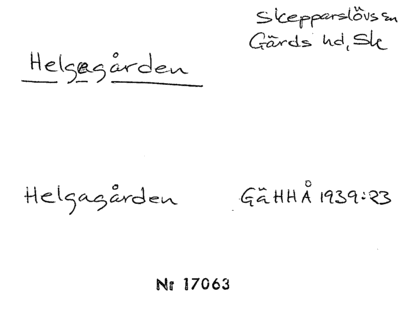 Skepparslövs sn
Gärds hd, Sk
Helgegården
Helgagården GäHHÅ 1939:23
Nr 17063